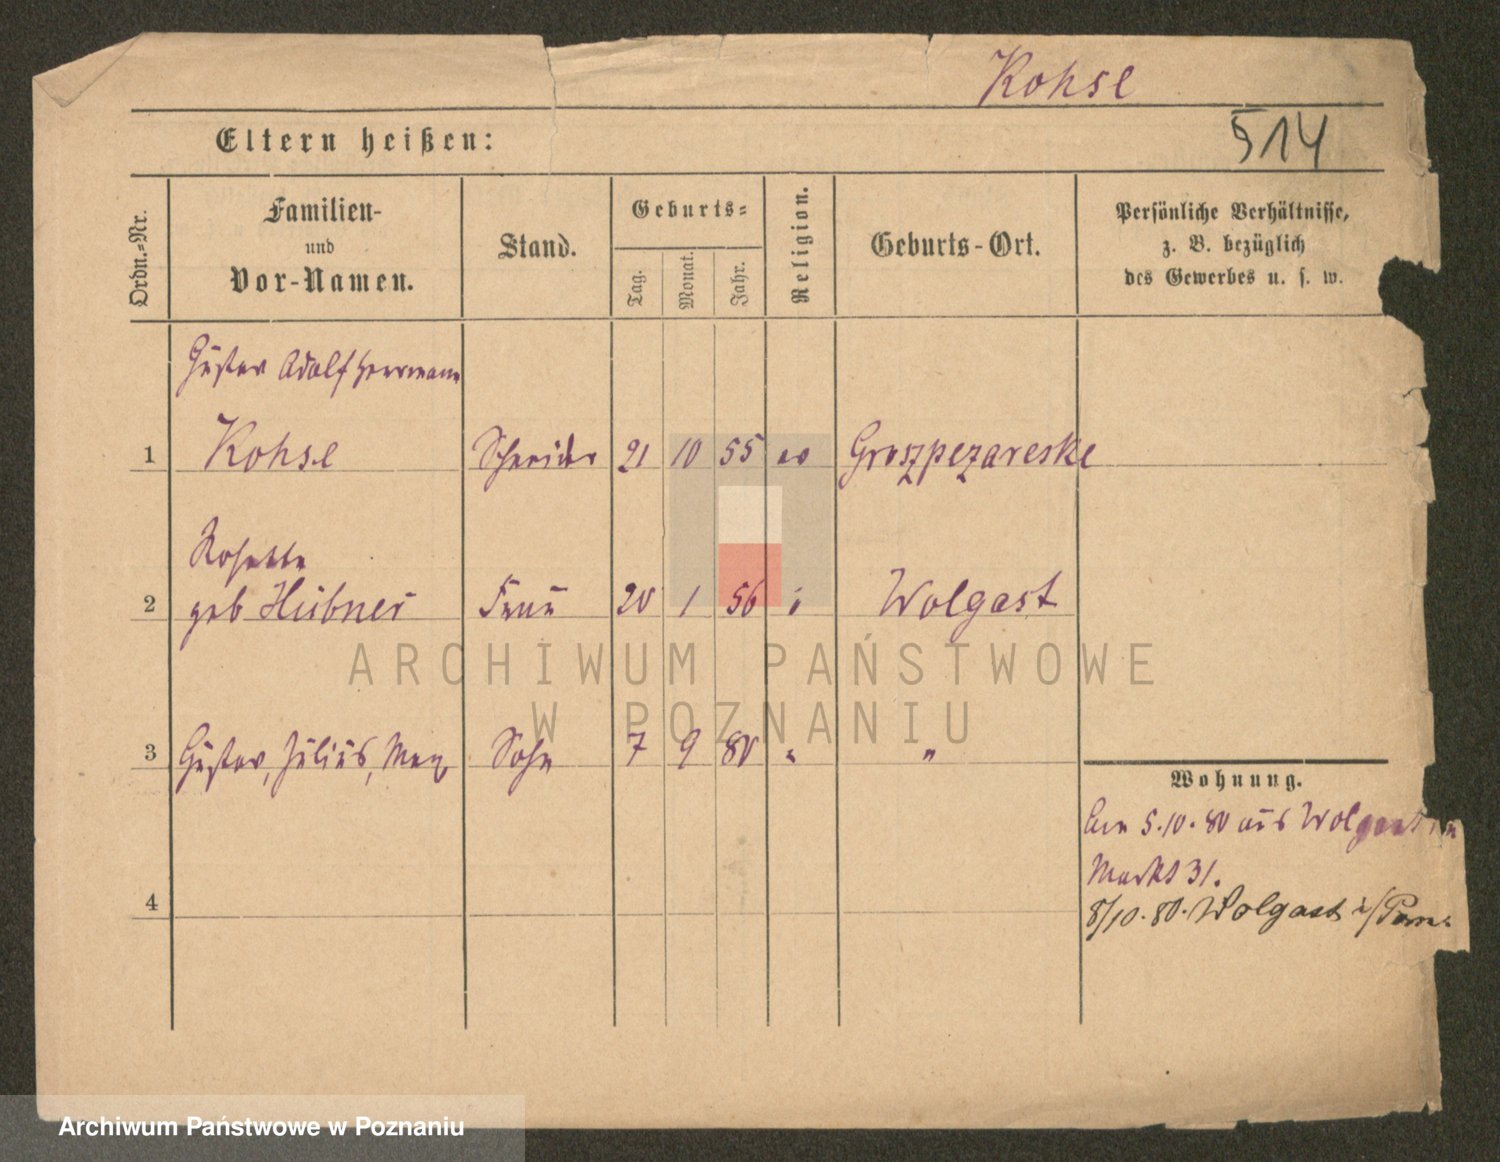 Kohse
514
Eltern heißen:
Ordn.-Nr.
Familien-
und
Vor-Namen.
Stand.
Geburts-
Tag.
Monat.
Jahr.
Religion.
Geburts-Ort.
Persönliche Verhältnisse,
z. B. bezüglich
des Gewerbes u. s. w.
Gustav Adolf Herrmann
1 Kohse Schneider 21 10 55 ev Groszpezareske
Rosette
2 geb Hübner Frau 20 1 56 Wolgast
3 Gustav, Julius, Max Sohn 7 9 80 " "
Wohnung.
Am 5.10.80 aus Wolgast
Markt 31.
4
8/10.80. Wolgast i/Pom.
ARCHIWUM PAŃSTWOWE
W POZNANIU
Archiwum Państwowe w Poznaniu